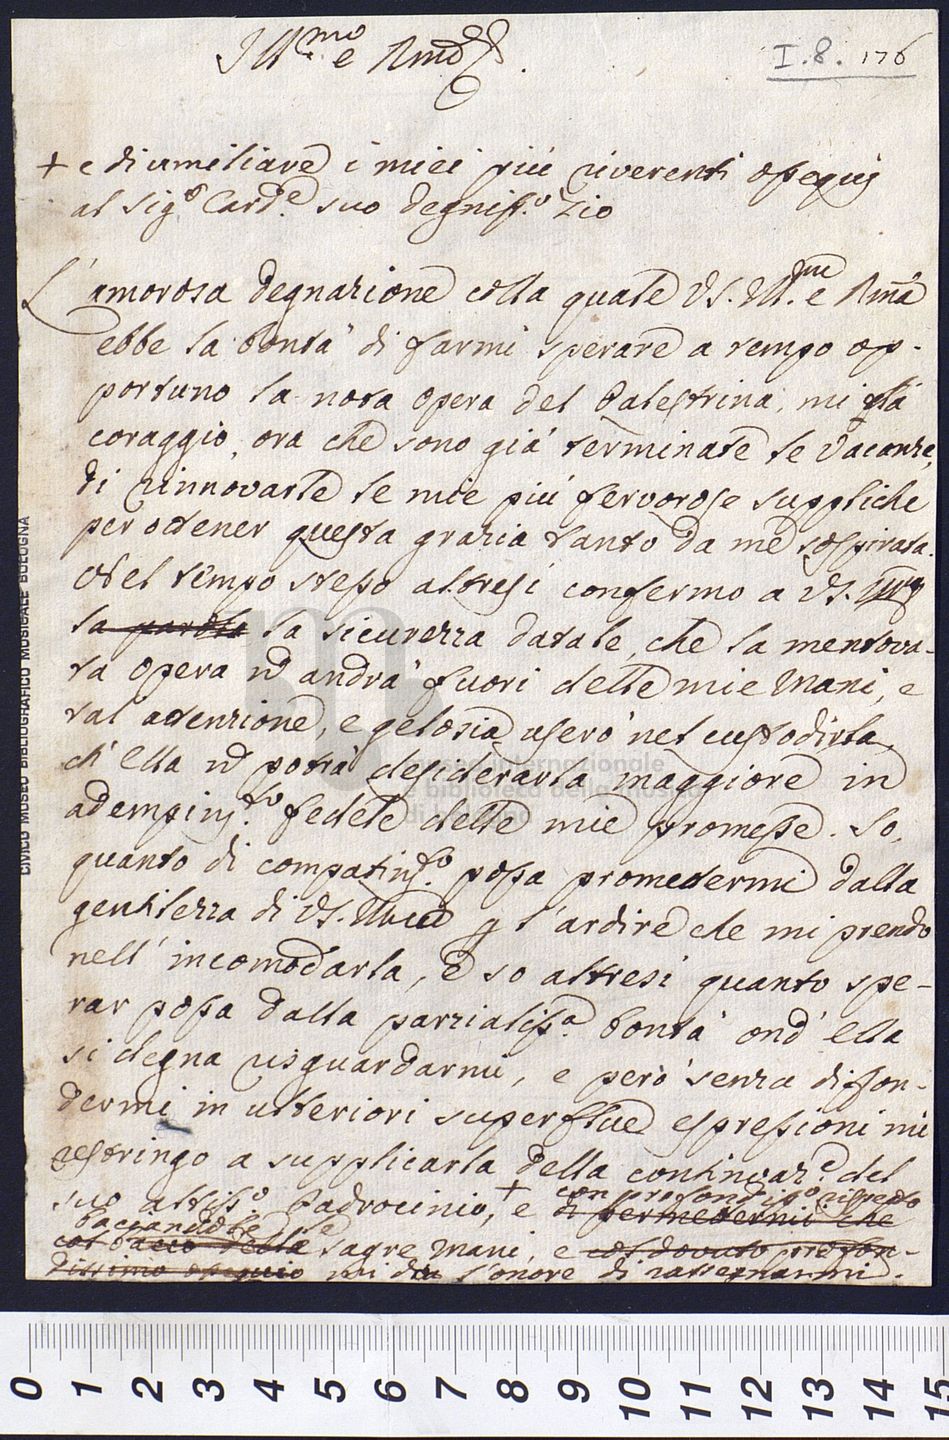 Ill.mo e Rmo
I. 8. 176
+ e di umiliare i miei più riverenti ossequij
al Sig.r Card.e suo degniss.o Zio
L'amorosa degnazione colla quale VS. Ill.ma e Rma
ebbe la bontà di farmi sperare a tempo op-
portuno la nota opera del Palestrina, mi dà
coraggio, ora che sono già terminate le Vacanze,
di rinnovarle le mie più fervorose suppliche
per ottener questa grazia tanto da me sospirata.
Nel tempo stesso altresì confermo a VS. Ill.ma
la parola la sicurezza datale, che la mentova-
ta opera nō andrà fuori delle mie Mani, e
tal attenzione, e gelosia userò nel custodirla,
ch'Ella nō potrà desiderarla maggiore in
adempim.to fedele delle mie promesse. So,
quanto di compatim.to possa promettermi dalla
gentilezza di VS. Ill.ma p l'ardire che mi prendo
nell'incomodarla, e so altresì quanto spe-
rar possa dalla parzialiss.a bontà ond'ella
si degna risguardarmi, e però senza diffon-
dermi in ulteriori superflue espressioni mi
restringo a supplicarla della continoaz.e del
suo altiss.o Padrocinio, + e con profondiss.o rispetto
di permettermi che
baciandole le
col bacio delle sagre Mani, e col dovuto profon-
dissimo ossequio mi do l'onore di rassegnarmi.
CIVICO MUSEO BIBLIOGRAFICO MUSICALE BOLOGNA
museo internazionale
e biblioteca della musica
di bologna
0 1 2 3 4 5 6 7 8 9 10 11 12 13 14 15